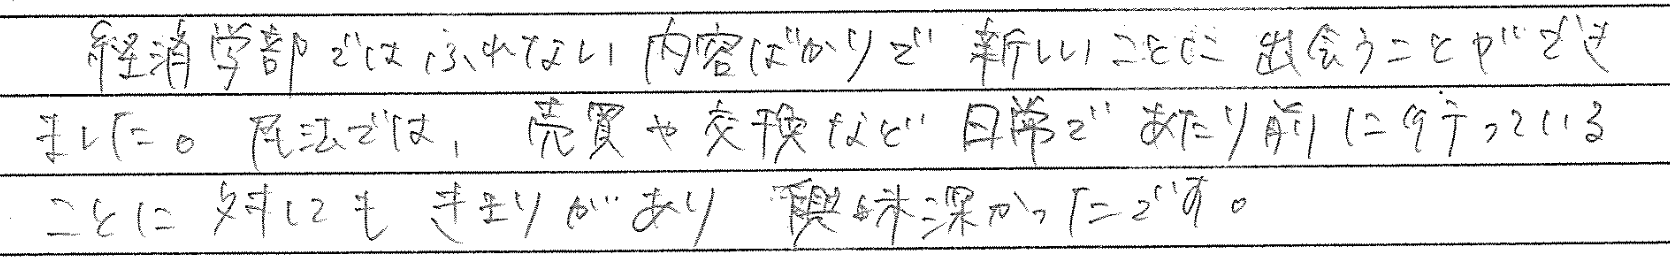 経済学部ではふれない内容ばかりで新しいことに出会うことができ
ました。民法では、売買や交換など日常であたり前に行っている
ことに対してもきまりがあり興味深かったです。